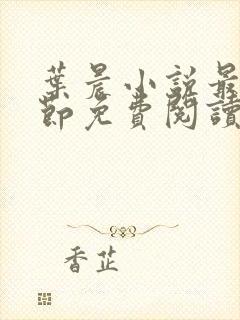 葉晨小說最
節免費閱讀
香芷